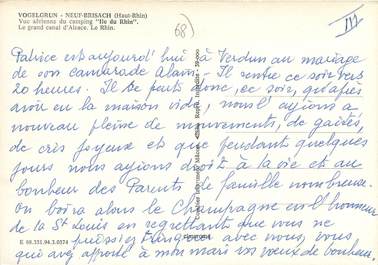 VOGELGRUN - NEUF-BRISACH (Haut-Rhin)
Vue aérienne du camping "Ile du Rhin".
Le grand canal d'Alsace. Le Rhin.
68
Patrice est aujourd'hui à Verdun au mariage
de son camarade Alain. Il rentre ce soir vers
20 heures. Il se peut donc, ce soir, qu'après
avoir eu la maison vide, nous l'ayions à
nouveau pleine de mouvements, de gaîtés,
de cris joyeux et que pendant quelques
jours nous ayions droit à la vie et au
bonheur des Parents de famille nombreuse.
On boira alors le Champagne en l'honneur
de la St Louis en regrettant que vous ne
puissiez trinquer avec nous, vous
qui avez à mon mari vos vœux de bonheur.
E 68.351.94.3.0574